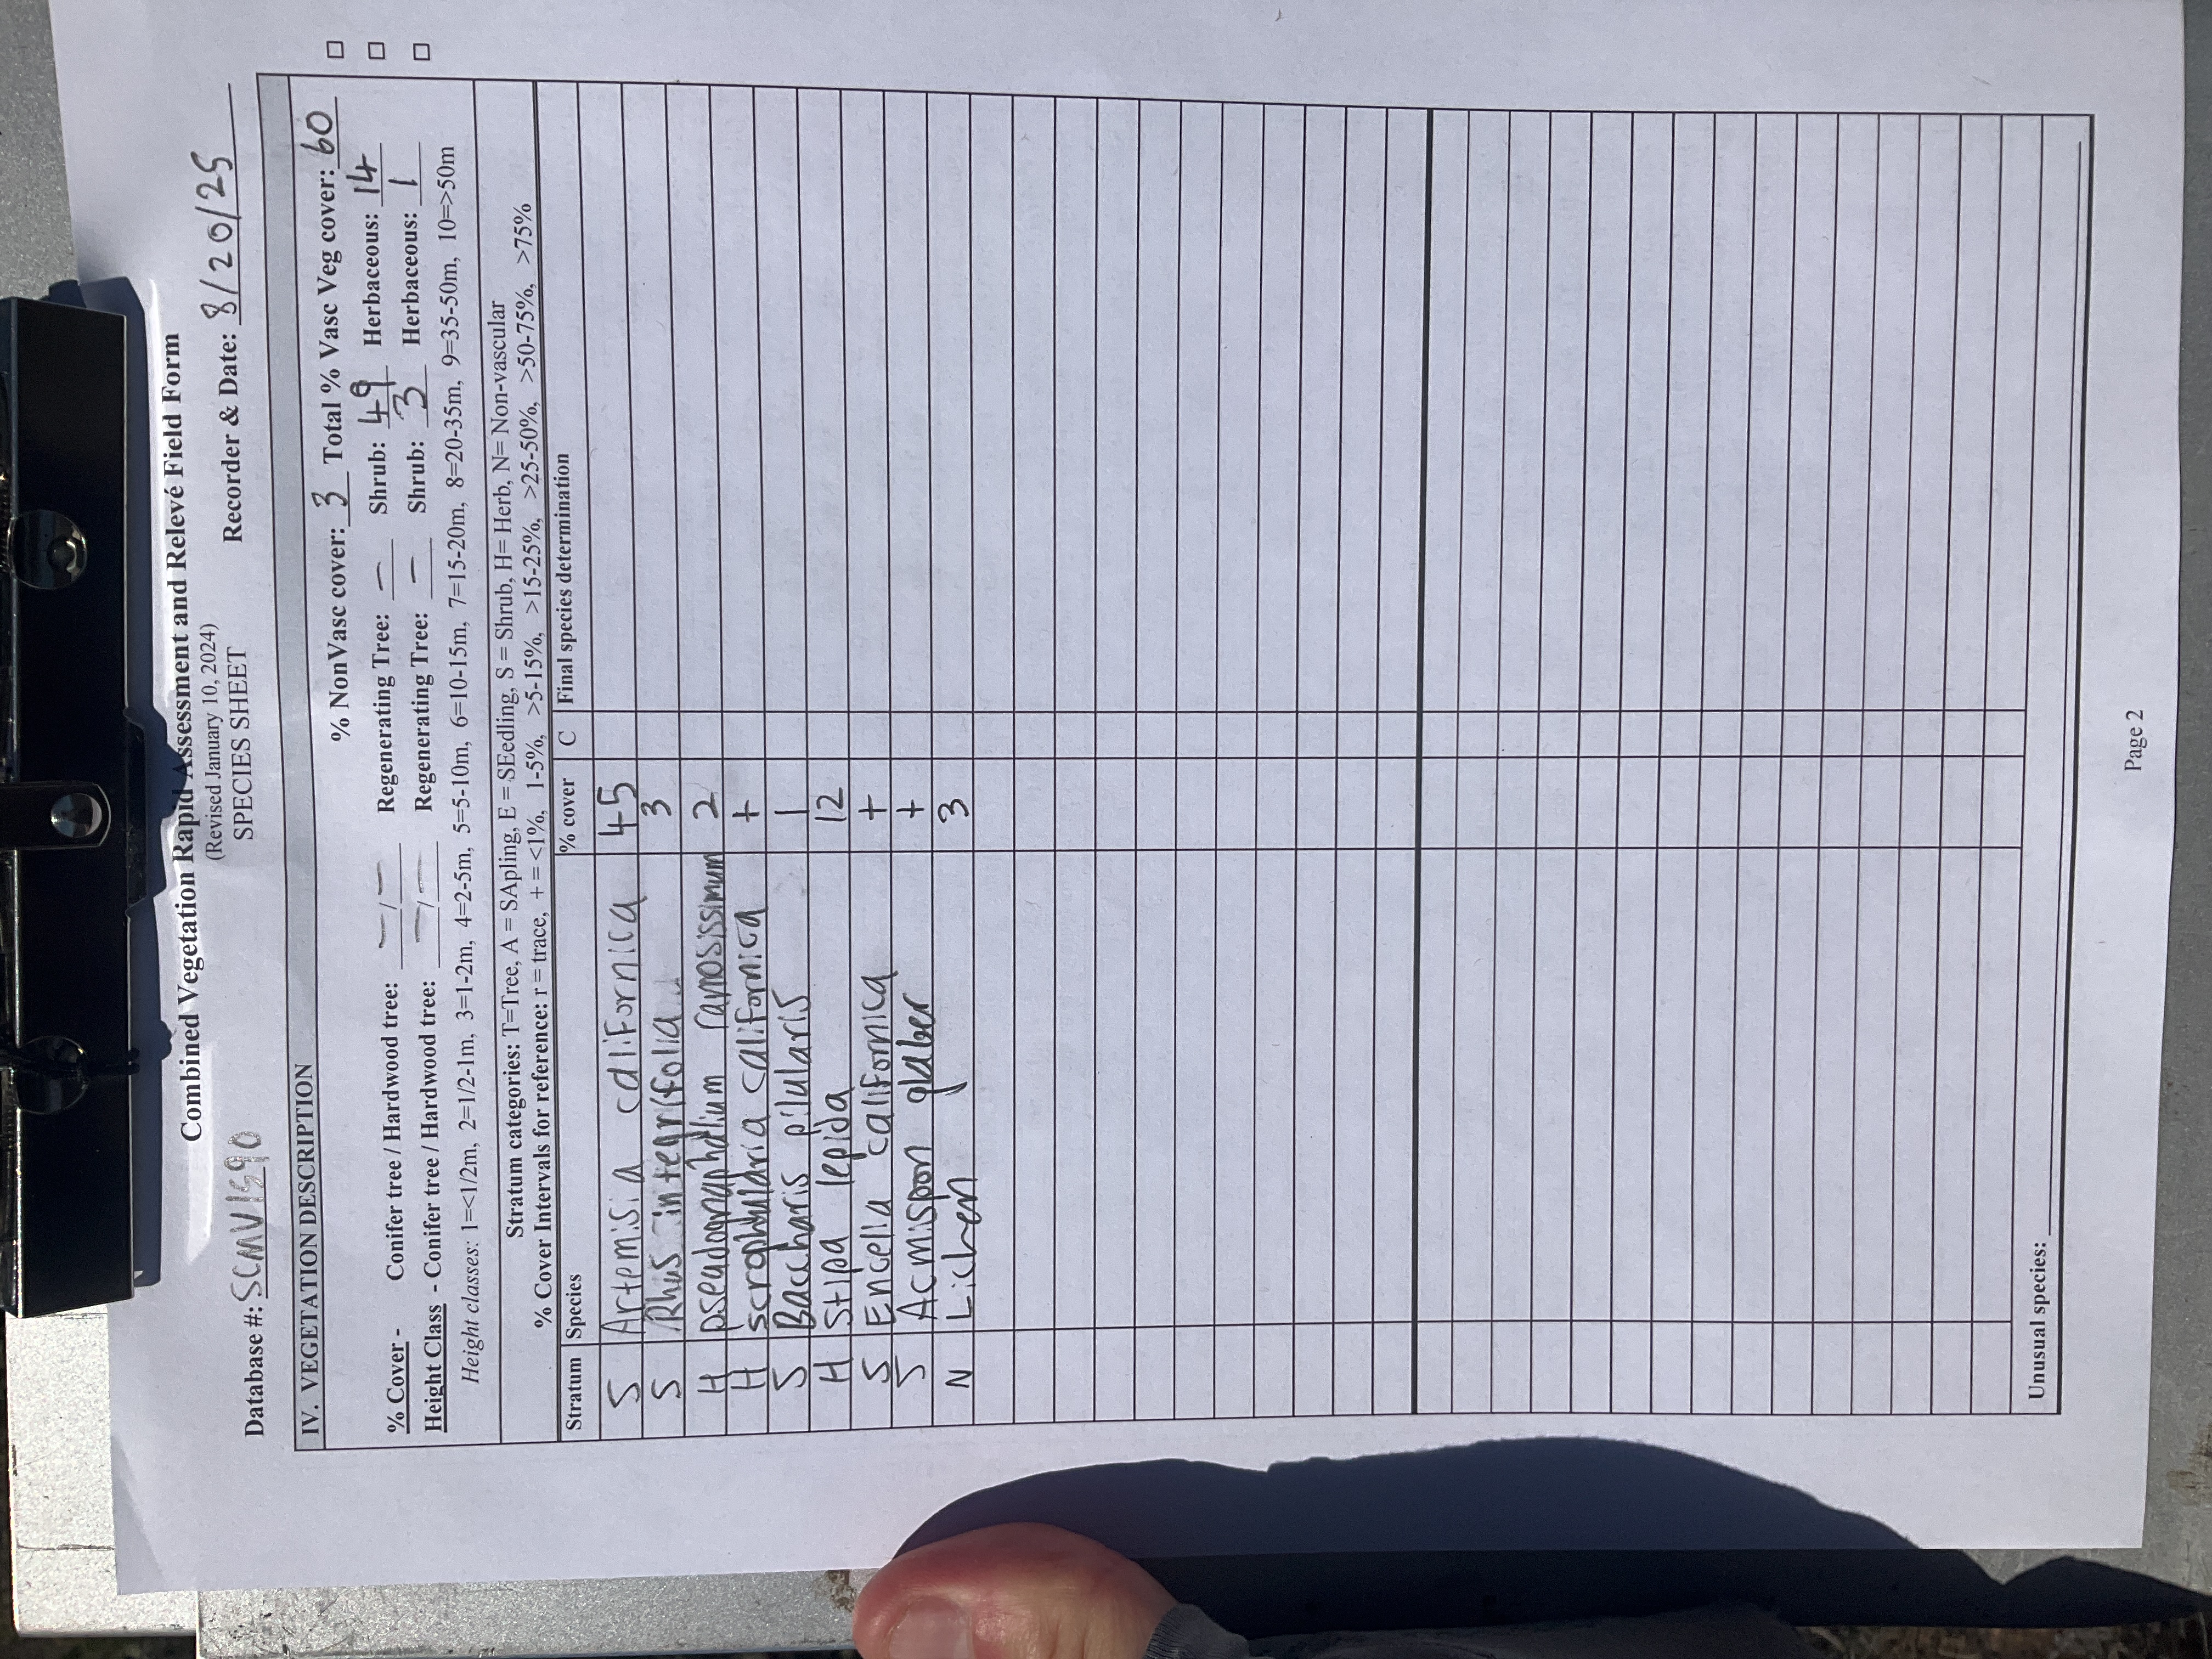 Combined Vegetation Rapid Assessment and Relevé Field Form
(Revised January 10, 2024)
SPECIES SHEET
Database #: SCMV1590 Recorder & Date: 8/20/25
IV. VEGETATION DESCRIPTION
% NonVasc cover: 3 Total % Vasc Veg cover: 60
% Cover - Conifer tree / Hardwood tree: — / — Regenerating Tree: — Shrub: 49 Herbaceous: 14
Height Class - Conifer tree / Hardwood tree: — / — Regenerating Tree: — Shrub: 3 Herbaceous: 1
Height classes: 1=<1/2m, 2=1/2-1m, 3=1-2m, 4=2-5m, 5=5-10m, 6=10-15m, 7=15-20m, 8=20-35m, 9=35-50m, 10=>50m
Stratum categories: T=Tree, A = SApling, E = SEedling, S = Shrub, H= Herb, N= Non-vascular
% Cover Intervals for reference: r = trace, + = <1%, 1-5%, >5-15%, >15-25%, >25-50%, >50-75%, >75%
Stratum Species % cover C Final species determination
S Artemisia californica 45
S Rhus integrifolia 3
H pseudognaphalium ramosissimum 2
H scrophularia californica +
S Baccharis pilularis 1
H Stipa lepida 12
S Encelia californica +
S Acmispon glaber +
N Lichen 3
Unusual species:
Page 2